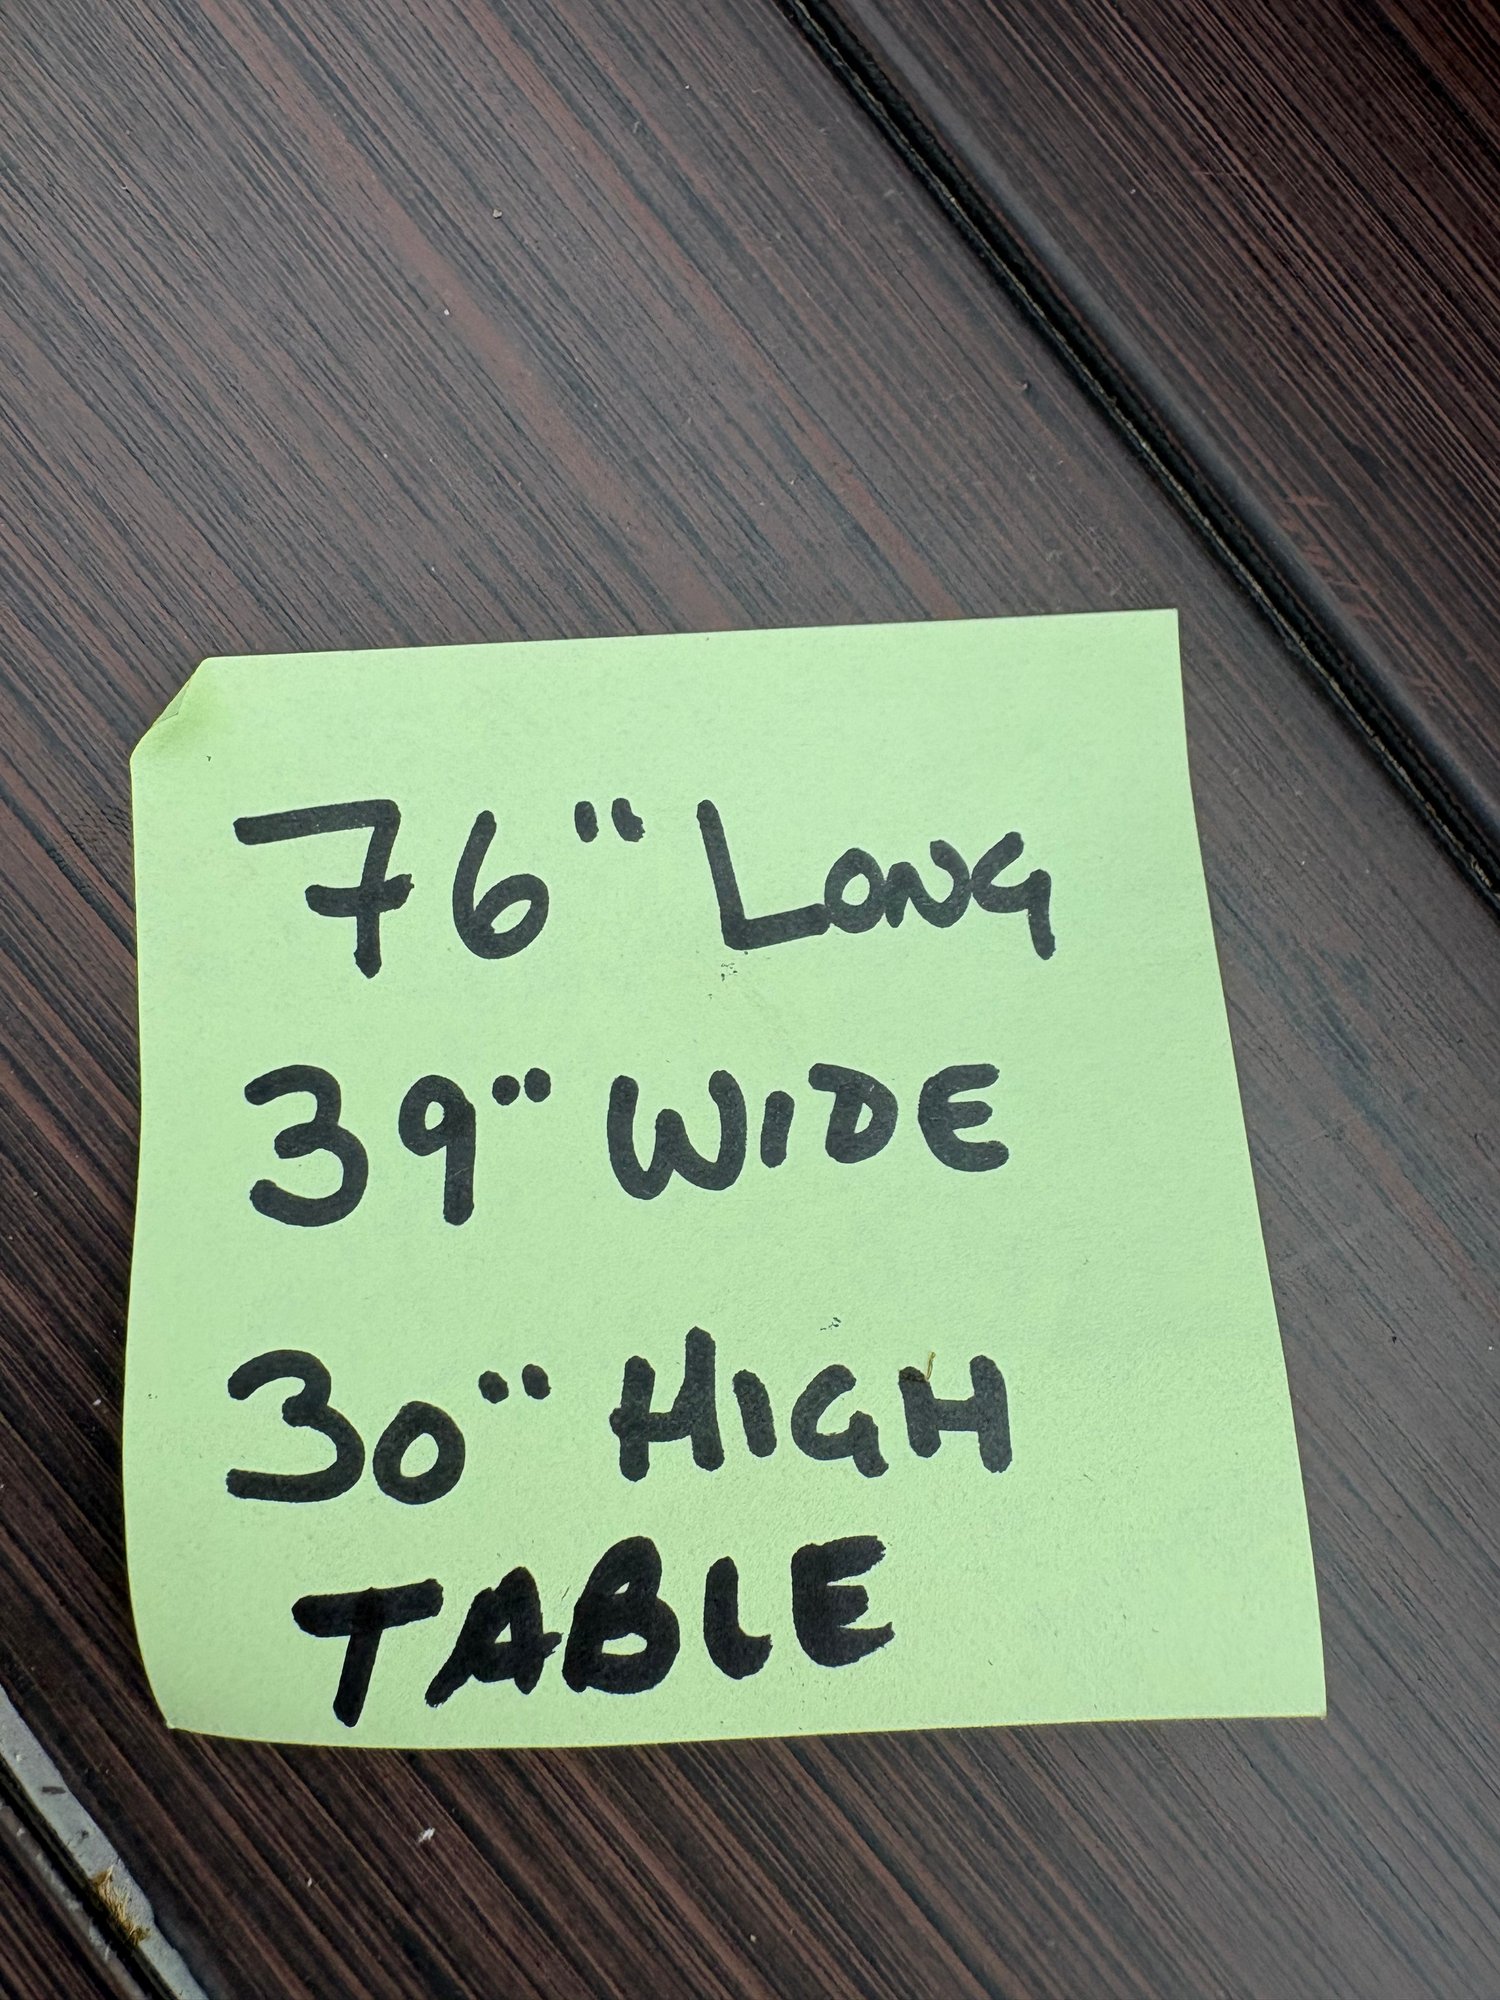 76" LONG
39" WIDE
30" HIGH
TABLE